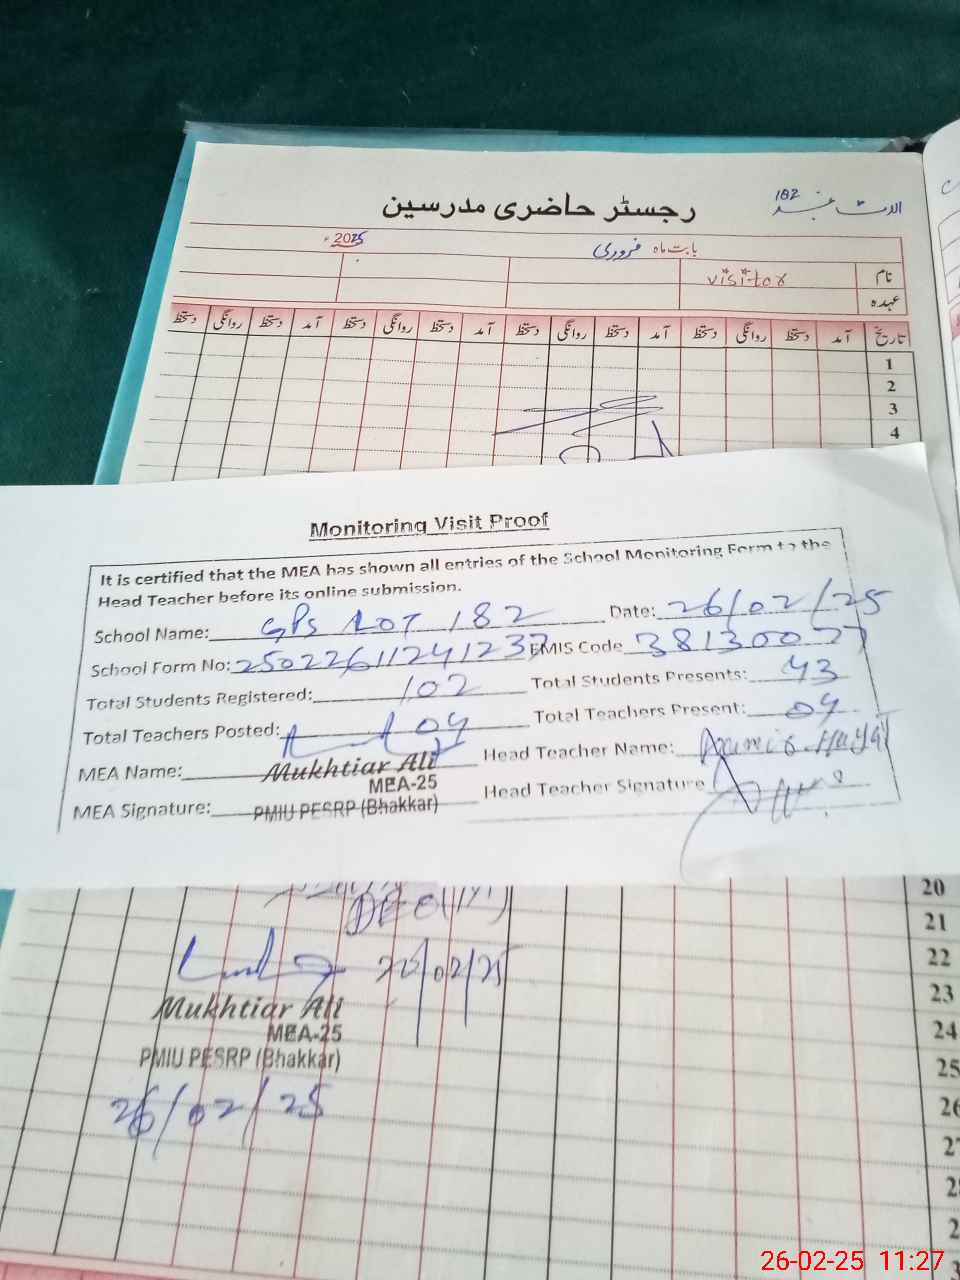 الاٹ نمبر 182
رجسٹر حاضری مدرسین
بابت ماہ فروری 2025ء
نام visitor
عہدہ
تاریخ آمد دستخط روانگی دستخط آمد دستخط روانگی دستخط آمد دستخط روانگی دستخط آمد دستخط روانگی دستخط
1
2
3
4
Monitoring Visit Proof
It is certified that the MEA has shown all entries of the School Monitoring Form to the
Head Teacher before its online submission.
School Name: GPS LOT 182 Date: 26/02/25
School Form No: 25022611241237 EMIS Code 38130077
Total Students Registered: 102 Total Students Presents: 43
Total Teachers Posted: 04 Total Teachers Present: 04
MEA Name: Mukhtiar Ali Head Teacher Name:
MEA-25
MEA Signature: PMIU PESRP (Bhakkar) Head Teacher Signature
20
21
22
23
24
25
26
27
Mukhtiar Ali
MEA-25
PMIU PESRP (Bhakkar)
26/02/25
26-02-25 11:27